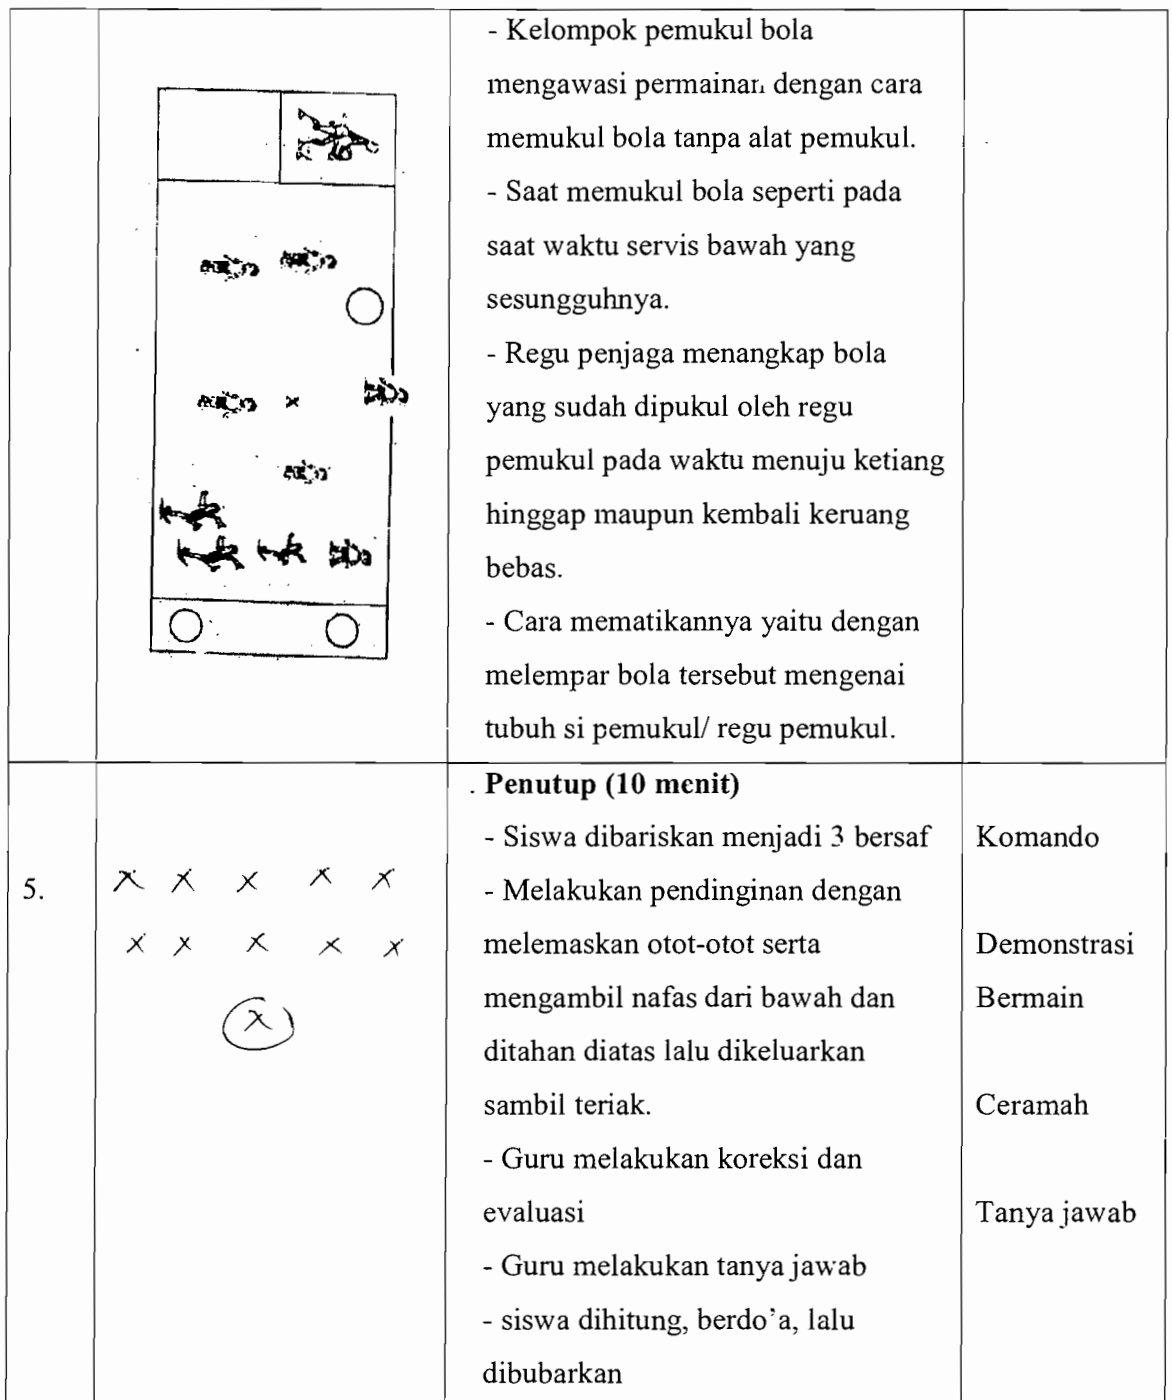 - Kelompok pemukul bola
mengawasi permainan dengan cara
memukul bola tanpa alat pemukul.
- Saat memukul bola seperti pada
saat waktu servis bawah yang
sesungguhnya.
- Regu penjaga menangkap bola
yang sudah dipukul oleh regu
pemukul pada waktu menuju ketiang
hinggap maupun kembali keruang
bebas.
- Cara mematikannya yaitu dengan
melempar bola tersebut mengenai
tubuh si pemukul/ regu pemukul.
5.
x x x x x
x x x x x
x
. Penutup (10 menit)
- Siswa dibariskan menjadi 3 bersaf
- Melakukan pendinginan dengan
melemaskan otot-otot serta
mengambil nafas dari bawah dan
ditahan diatas lalu dikeluarkan
sambil teriak.
- Guru melakukan koreksi dan
evaluasi
- Guru melakukan tanya jawab
- siswa dihitung, berdo'a, lalu
dibubarkan
Komando
Demonstrasi
Bermain
Ceramah
Tanya jawab